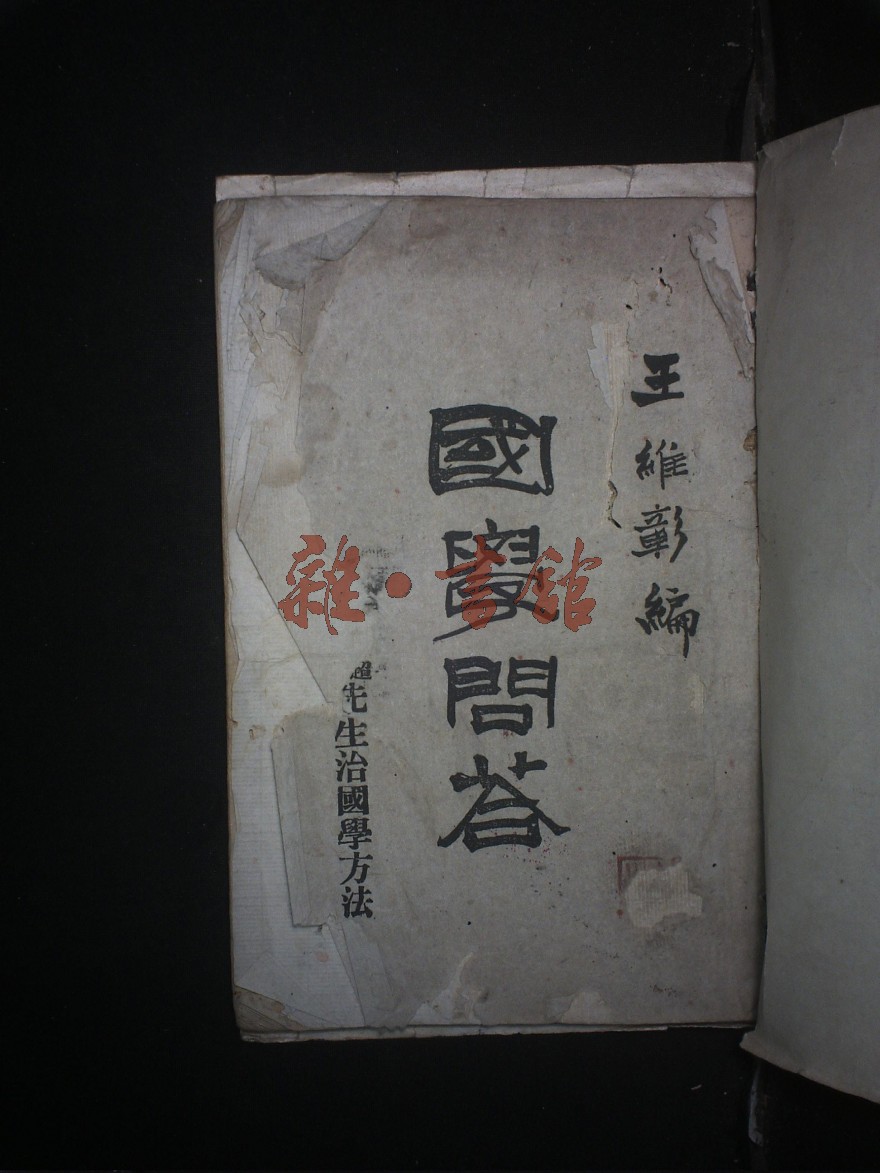 王維彰編
國學問荅
超先生治國學方法
雜·書館